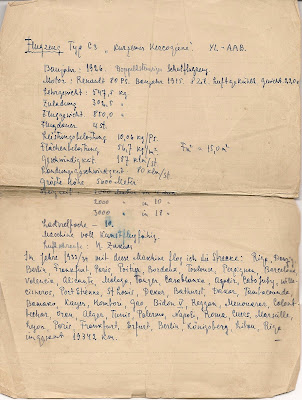 Flugzeug Typ C3 „Kurzemes Hercogiene" YL-AAB.
Baujahr: 1926. Doppelsitziges Schulflugzeug
Motor: Renault 80 PS. Baujahr 1915. luftgekühlt gewicht 220
Leergewicht: 547,5 kg
Zuladung 302,5 "
Fluggewicht 850,0 "
Flugdauer 4 st.
Leistungsbelastung 10,04 kg/Ps.
Flächenbelastung 56,7 kg/m² Fm² = 15,0 m²
geschwindigkeit 137 klm/st
Landungsgeschwindigkeit 80 klm/st
Größte Höhe 5000 Meter
2000 " in 10 "
3000 " in 18 "
Maschine voll Kunstflugfähig
Luftschraube: H. Zuskas
Im Jahre 1932/33 mit diese Maschine flog ich die Strecke: Riga, Danzig,
Berlin, Frankfurt, Paris, Poitier, Bordeaux, Toulouse, Perpignan, Barcelona
Valencia, Alicante, Malaga, Tanger, Casablanca, Agadir, Cabo Juby, Villa-
cisneros, Port Etienne, St Louis, Dakar, Bathurst, Dakar, Tambacounda,
Bamako, Kayes, Hombori, Gao, Bidon V, Reggan,
Bechar, Oran, Alger, Tunis, Palermo, Napoli, Roma, Cuers, Marseille,
Lyon, Paris, Frankfurt, Erfurt, Berlin, Königsberg, Riga
insgesamt 19342 km.